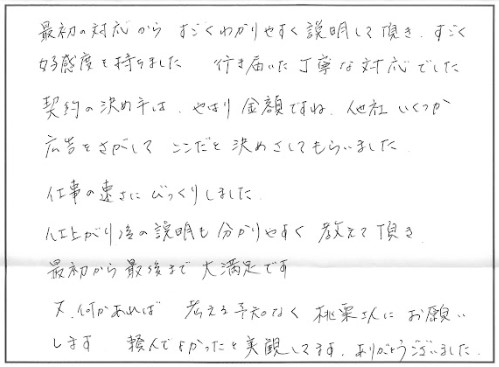 最初の対応から すごくわかりやすく説明して頂き、すごく
好感度を持ちました 行き届いた丁寧な対応でした
契約の決め手は、やはり金額ですね、他社いくつか
広告をさがして ここだと決めさしてもらいました
仕事の速さにびっくりしました
仕上がり後の説明も分かりやすく 教えて頂き
最初から最後まで大満足です
又、何かあれば 考える予知なく 桃栗さんにお願い
します 頼んでよかったと実観してます、ありがとうございました